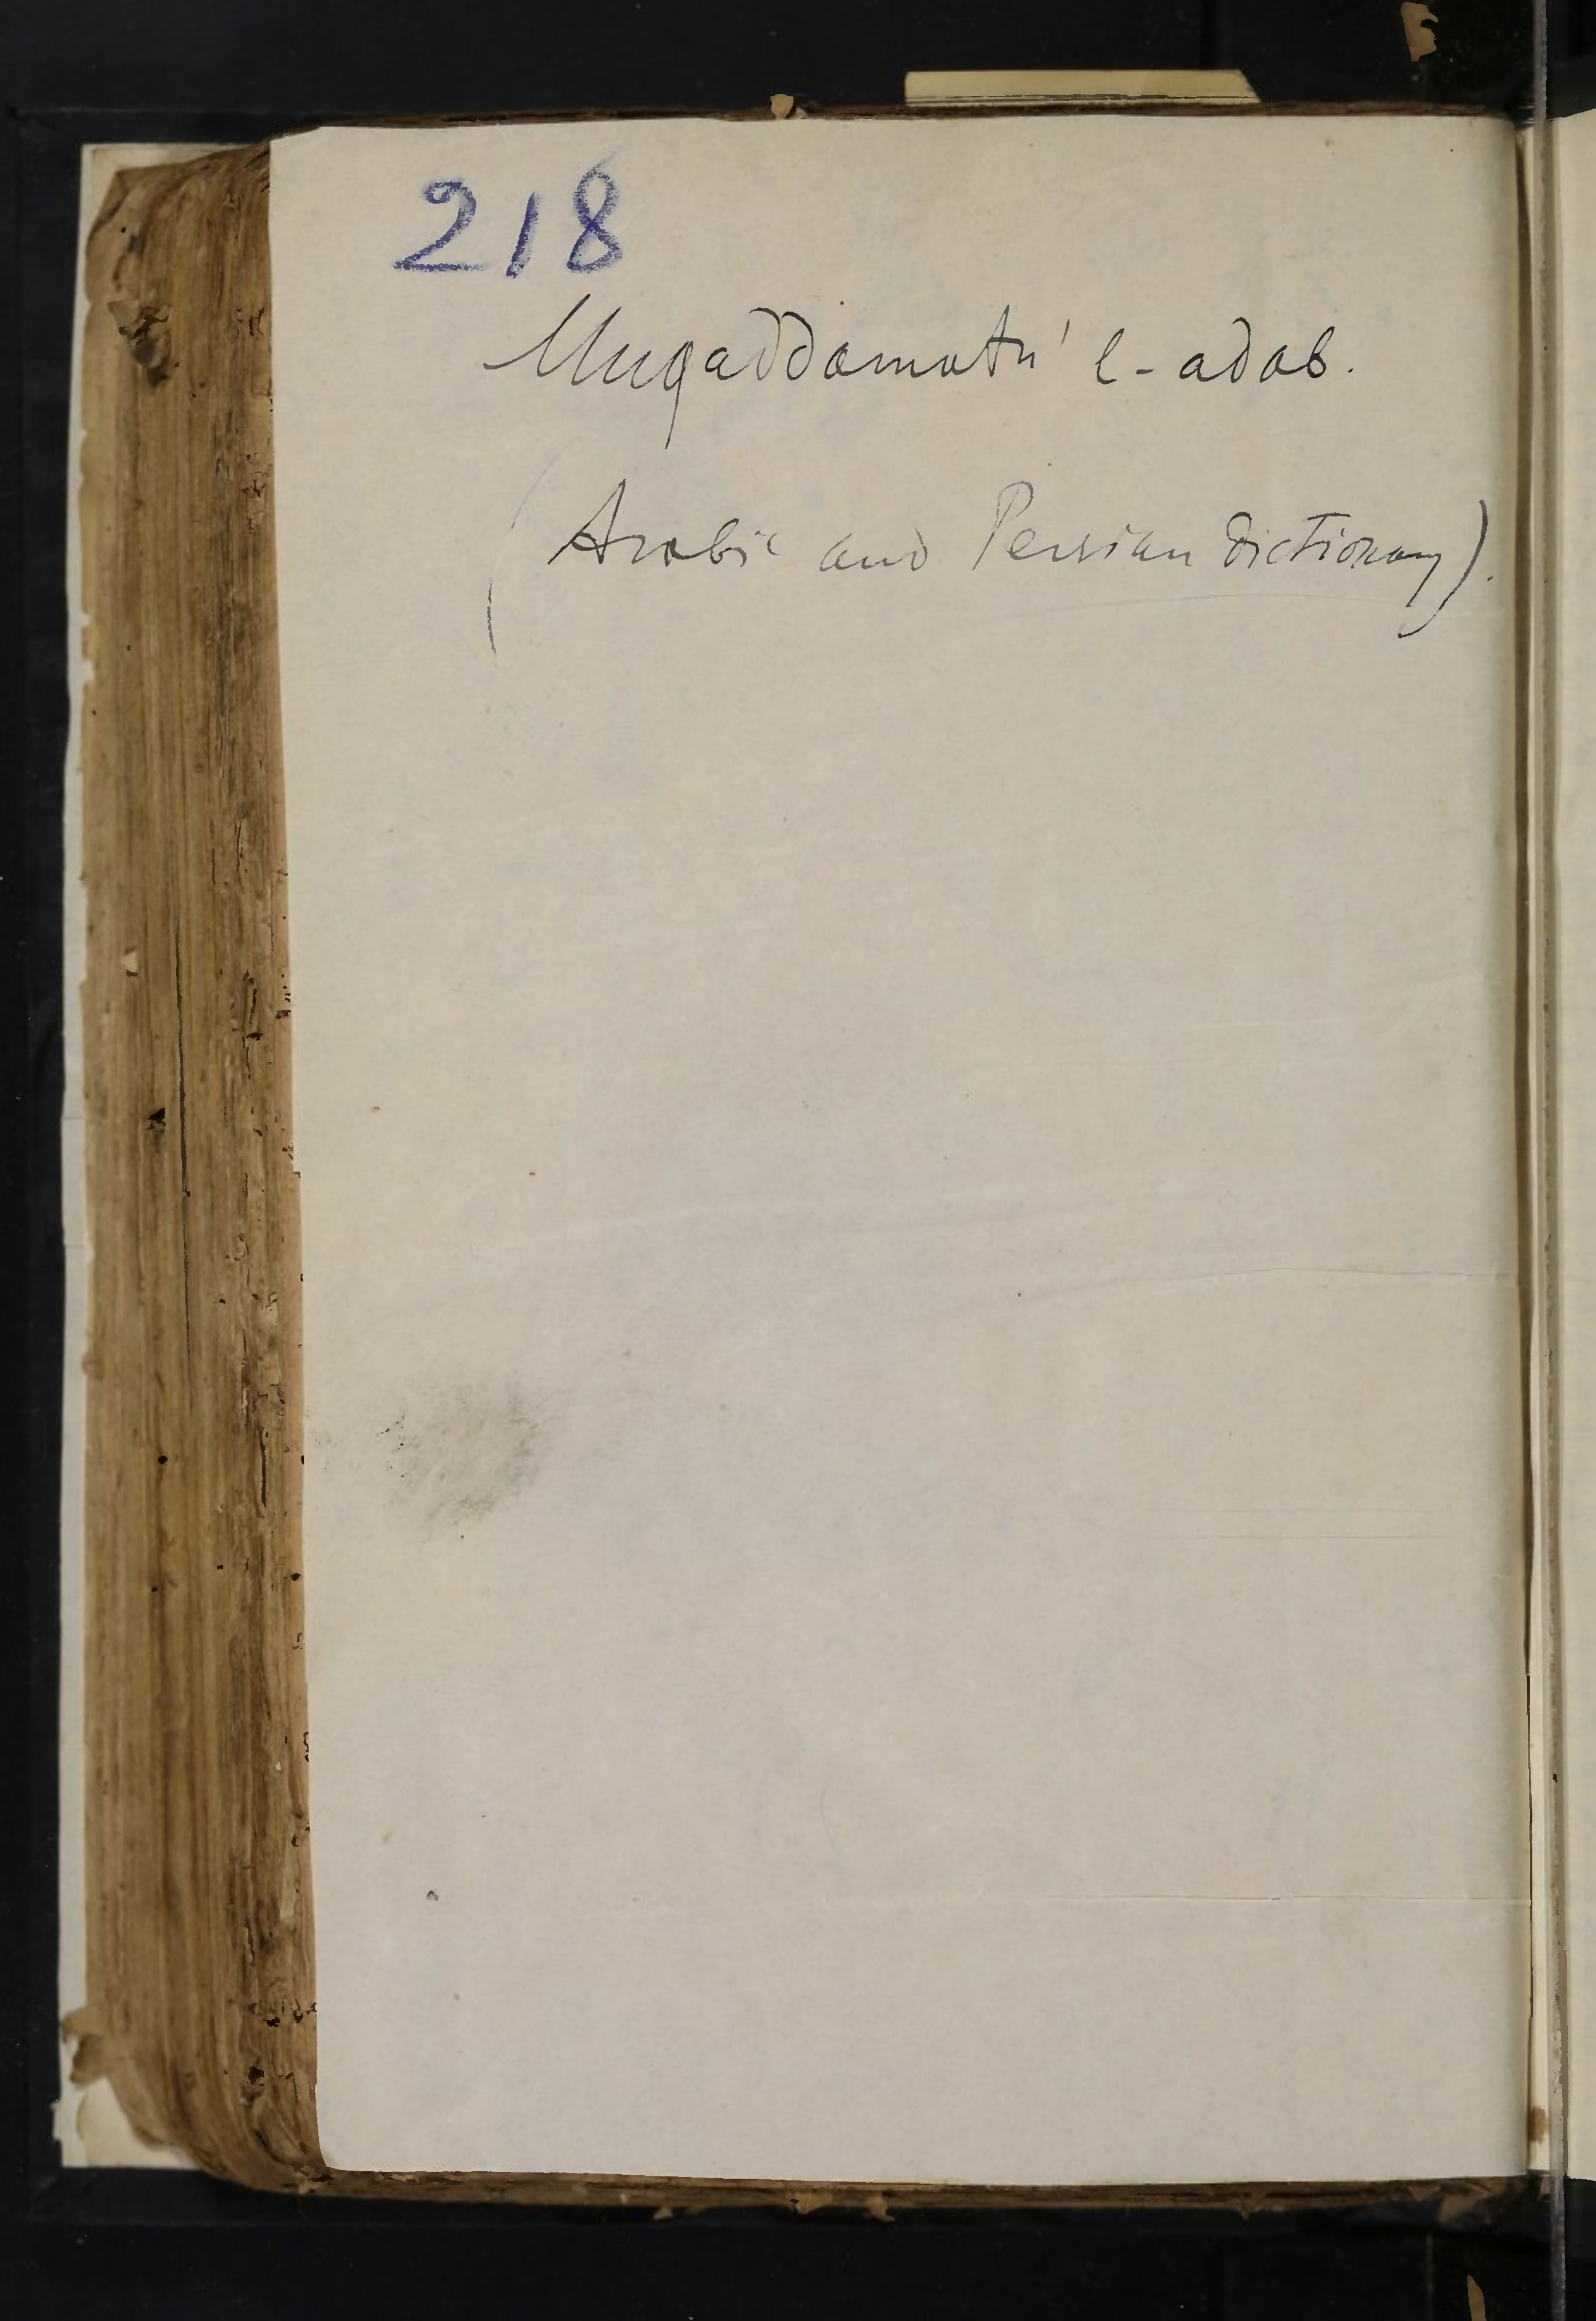 218
Muqaddamatu'l-adab.
(Arabic and Persian Dictionary).